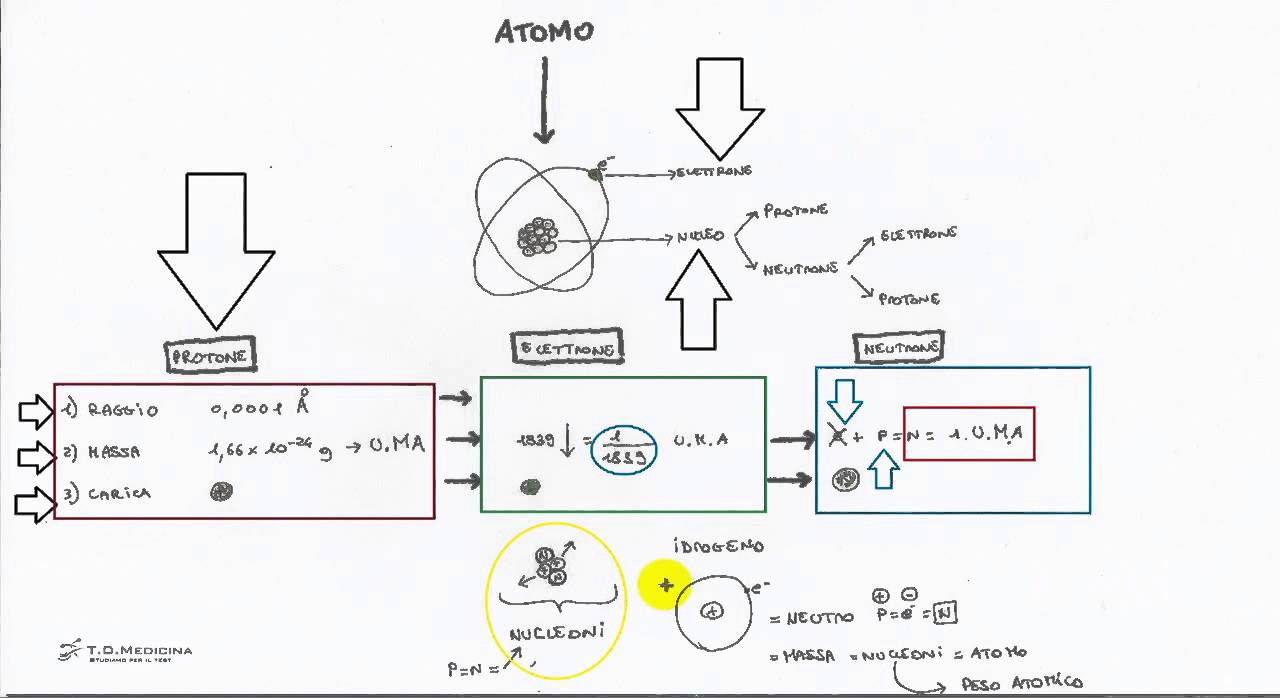 ATOMO
e⁻
ELETTRONE
PROTONE
NUCLEO
ELETTRONE
NEUTRONE
PROTONE
PROTONE
ELETTRONE
NEUTRONE
1) RAGGIO 0,0001 Å
2) MASSA 1,66 x 10⁻²⁴ g → U.MA
3) CARICA +
1839 ↓ = 1/1839 U.M.A
+ P = N = 1.U.M.A
N
IDROGENO
N + + N
+
+ e⁻
NUCLEONI
P=N =
+ -
= NEUTRO P=e⁻=N
= MASSA = NUCLEONI = ATOMO
PESO ATOMICO
T.D.MEDICINA
STUDIAMO PER IL TEST